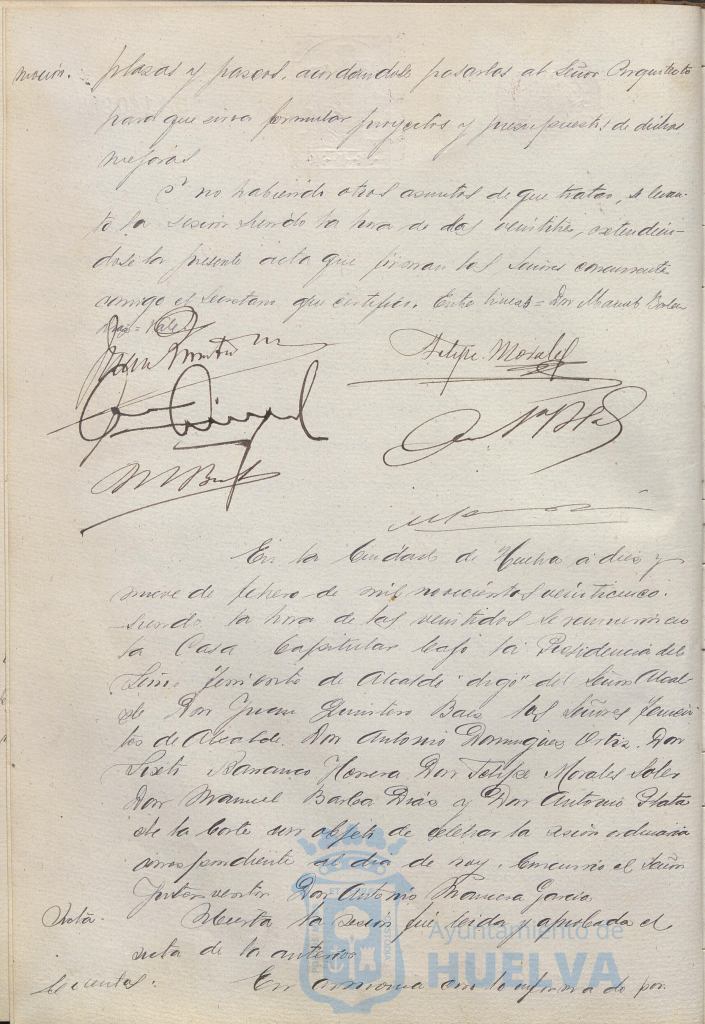 moción. plazas y paseos, acordándose pasarlas al Señor Arquitecto
para que sirva formular proyectos y presupuestos de dichas
mejoras
Y no habiendo otros asuntos de que tratar, se levan-
tó la sesión siendo la hora de las veintitrés, extendién-
dose la presente acta que firman los Señores concurrentes
conmigo el Secretario que certifico. Entre lineas = Don Manuel Barba
Díaz = Vale
Felipe Morales
En la Ciudad de Huelva a diez y
nueve de febrero de mil novecientos veinticinco.
siendo la hora de las veintidos se reunieron en
la Casa Capitular bajo la Presidencia del
Señor Teniente de Alcalde del Señor Alcal-
de Don Juan Quintero Baez los Señores Tenien-
tes de Alcalde Don Antonio Dominguez Ortiz. Don
Herrera Don Felipe Morales Soler
Don Manuel Barba Diáz y Don Antonio Plata
de la Corte con objeto de celebrar la sesion ordinaria
correspondiente al dia de hoy. Concurrio el Señor
Interventor Don Antonio Garcia
Acta. Abierta la sesion fué leida y aprobada el
acta de la anterior
Ayuntamiento de
HUELVA
Cuentas. En armonia con lo informado por